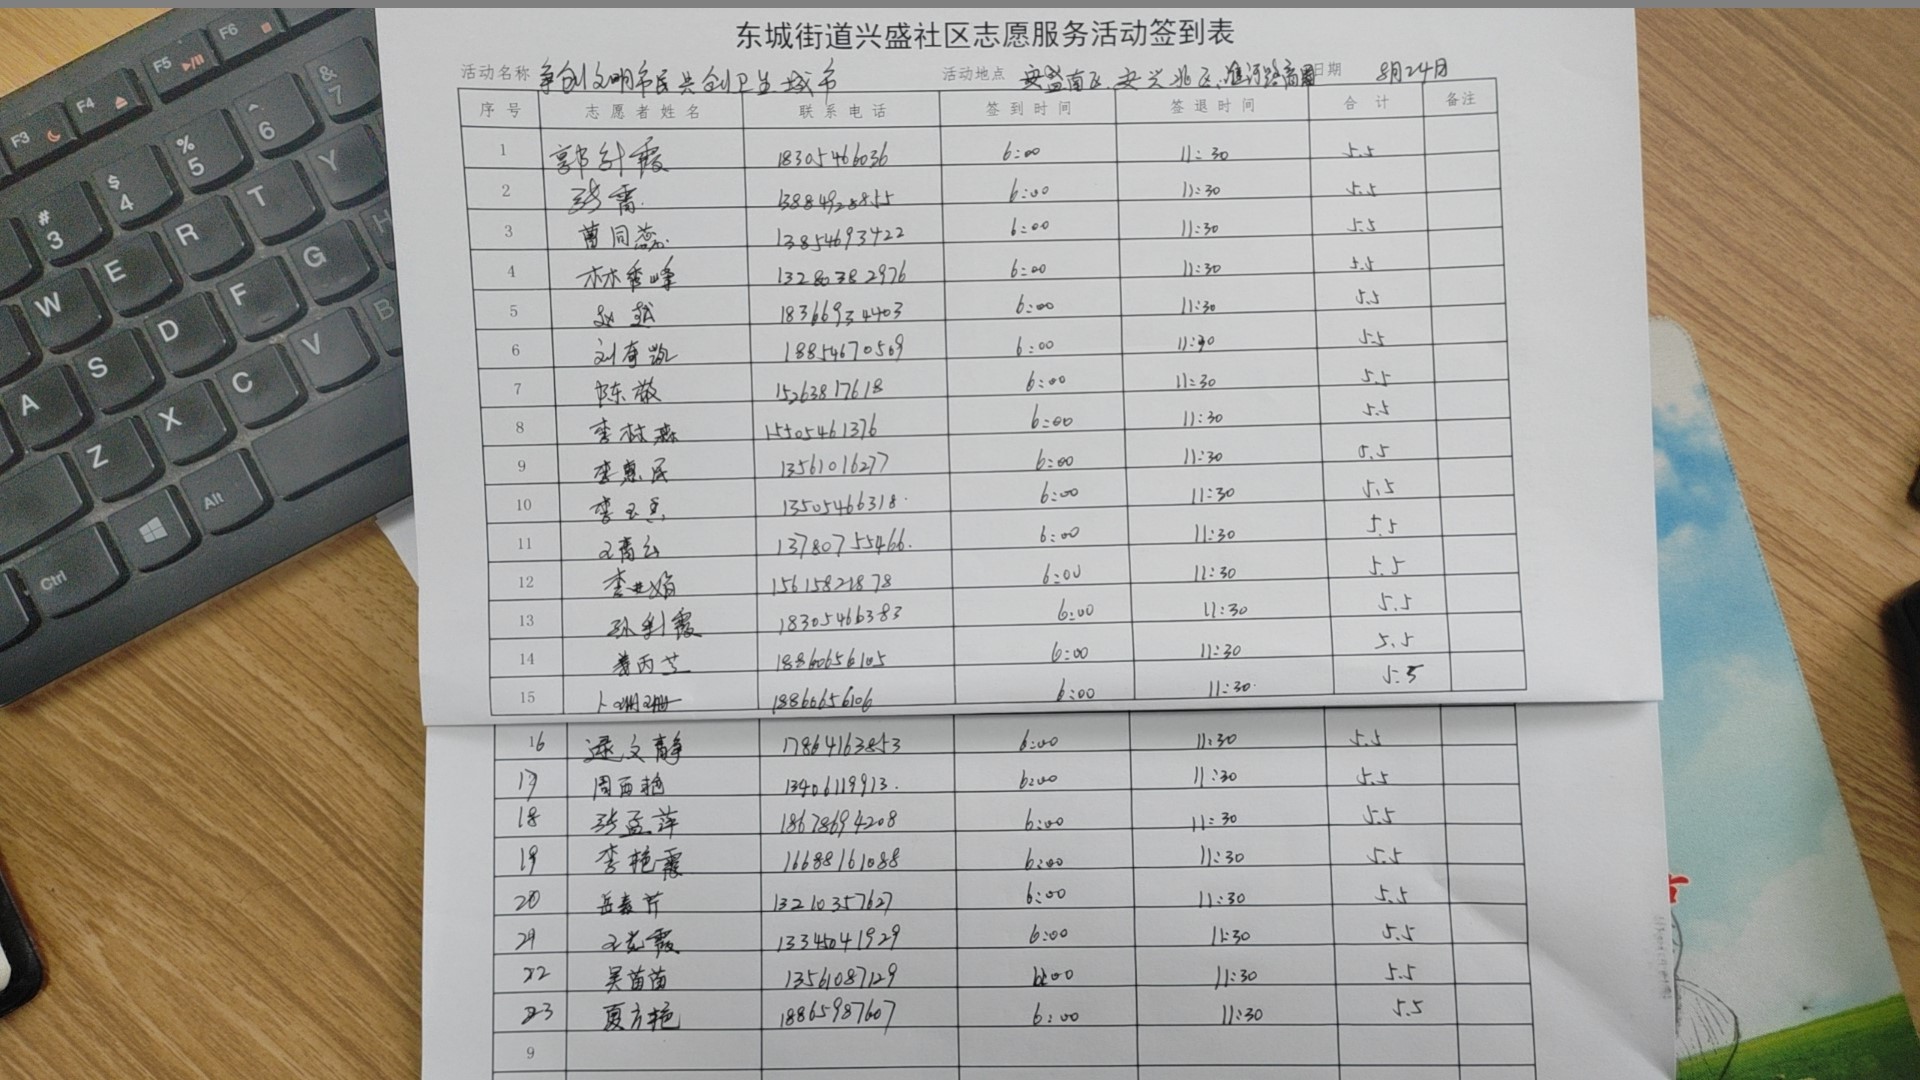 东城街道兴盛社区志愿服务活动签到表
活动名称 争创文明市民共创卫生城市 活动地点 安盛南区.安兴北区.淮河路商圈 日期 8月24日
序号 志愿者姓名 联系电话 签到时间 签退时间 合计 备注
1 霞 18305466036 6:00 11:30 5.5
2 张雷 6:00 11:30 5.5
3 曹同蕊 13854693422 6:00 11:30 5.5
4 林秀峰 13280382976 6:00 11:30 5.5
5 赵越 18366934403 6:00 11:30 5.5
6 刘奇凯 18854670569 6:00 11:30 5.5
7 陈敬 15263817618 6:00 11:30 5.5
8 李林燕 15505461376 6:00 11:30 5.5
9 李惠民 13561016277 6:00 11:30 5.5
10 李玉 13505466318 6:00 11:30 5.5
11 王 13780755466 6:00 11:30 5.5
12 李 15615821878 6:00 11:30 5.5
13 孙利霞 18305466383 6:00 11:30 5.5
14 黄丙芝 18860656105 6:00 11:30 5.5
15 卜珊珊 18866656106 6:00 11:30 5.5
16 逯文静 17864163853 6:00 11:30 5.5
17 周艳 13406119913 6:00 11:30 5.5
18 张孟萍 18678694208 6:00 11:30 5.5
19 李艳霞 16688161088 6:00 11:30 5.5
20 岳春芹 13210357627 6:00 11:30 5.5
21 王霞 13345041929 6:00 11:30 5.5
22 吴苗苗 13561087129 6:00 11:30 5.5
23 夏方艳 18865987607 6:00 11:30 5.5
9
F3
F4
F5
F6
#
3
$
4
%
5
^
6
&
7
W
E
R
T
Y
A
S
D
F
G
H
Z
X
C
V
B
Ctrl
Alt